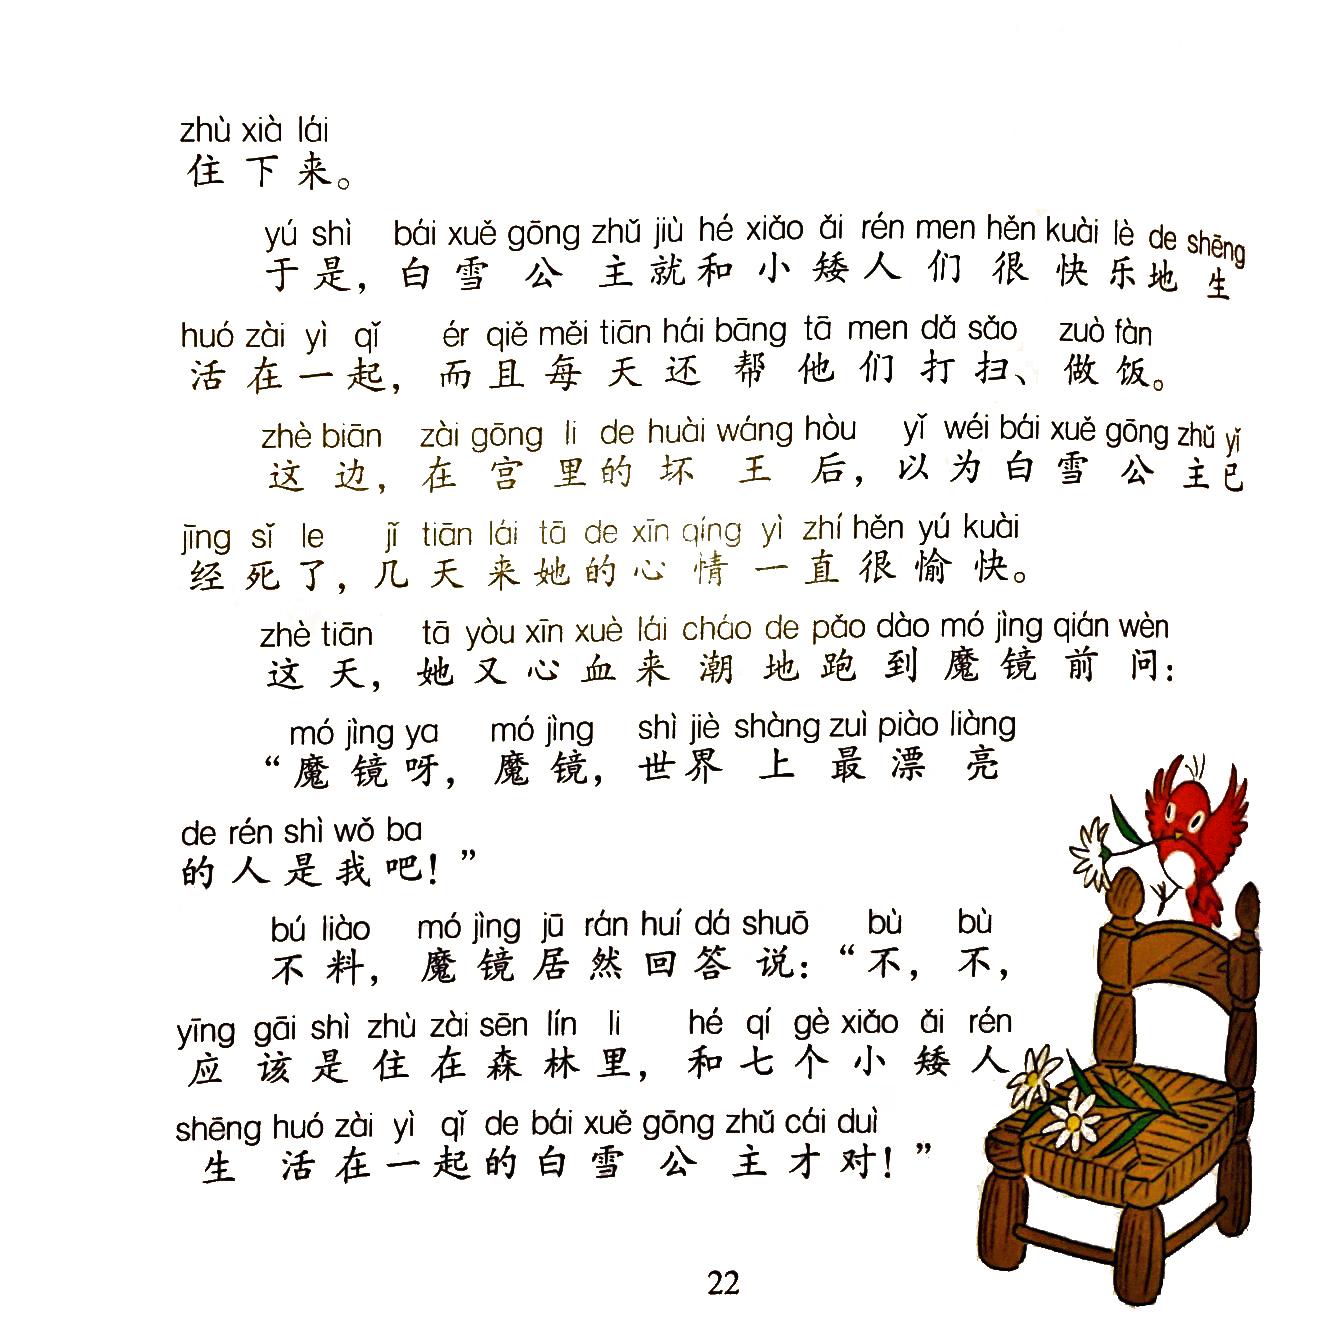 zhù xià lái
住下来。
yú shì bái xuě gōng zhǔ jiù hé xiǎo ǎi rén men hěn kuài lè de shēng
于是，白雪公主就和小矮人们很快乐地生
huó zài yì qǐ ér qiě měi tiān hái bāng tā men dǎ sǎo zuò fàn
活在一起，而且每天还帮他们打扫、做饭。
zhè biān zài gōng li de huài wáng hòu yǐ wéi bái xuě gōng zhǔ yǐ
这边，在宫里的坏王后，以为白雪公主已
jīng sǐ le jǐ tiān lái tā de xīn qíng yì zhí hěn yú kuài
经死了，几天来她的心情一直很愉快。
zhè tiān tā yòu xīn xuè lái cháo de pǎo dào mó jìng qián wèn
这天，她又心血来潮地跑到魔镜前问：
mó jìng ya mó jìng shì jiè shàng zuì piào liàng
“魔镜呀，魔镜，世界上最漂亮
de rén shì wǒ ba
的人是我吧！”
bú liào mó jìng jū rán huí dá shuō bù bù
不料，魔镜居然回答说：“不，不，
yīng gāi shì zhù zài sēn lín li hé qí gè xiǎo ǎi rén
应该是住在森林里，和七个小矮人
shēng huó zài yì qǐ de bái xuě gōng zhǔ cái duì
生活在一起的白雪公主才对！”
22